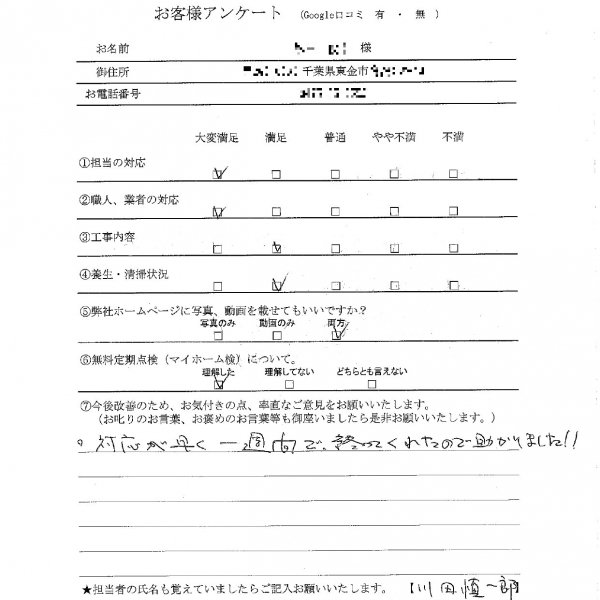 お客様アンケート （Google口コミ 有 ・ 無 ）
お名前 様
御住所 千葉県東金市
お電話番号
大変満足 満足 普通 やや不満 不満
①担当の対応
②職人、業者の対応
③工事内容
④養生・清掃状況
⑤弊社ホームページに写真、動画を載せてもいいですか?
写真のみ 動画のみ 両方
⑥無料定期点検（マイホーム検）について。
理解した 理解してない どちらとも言えない
⑦今後改善のため、お気付きの点、率直なご意見をお願いいたします。
（お叱りのお言葉、お褒めのお言葉等も御座いましたら是非お願いいたします。）
。対応が早く一週間で、終ってくれたので助かりました!!
★担当者の氏名も覚えていましたらご記入お願いいたします。 【川田慎一郎